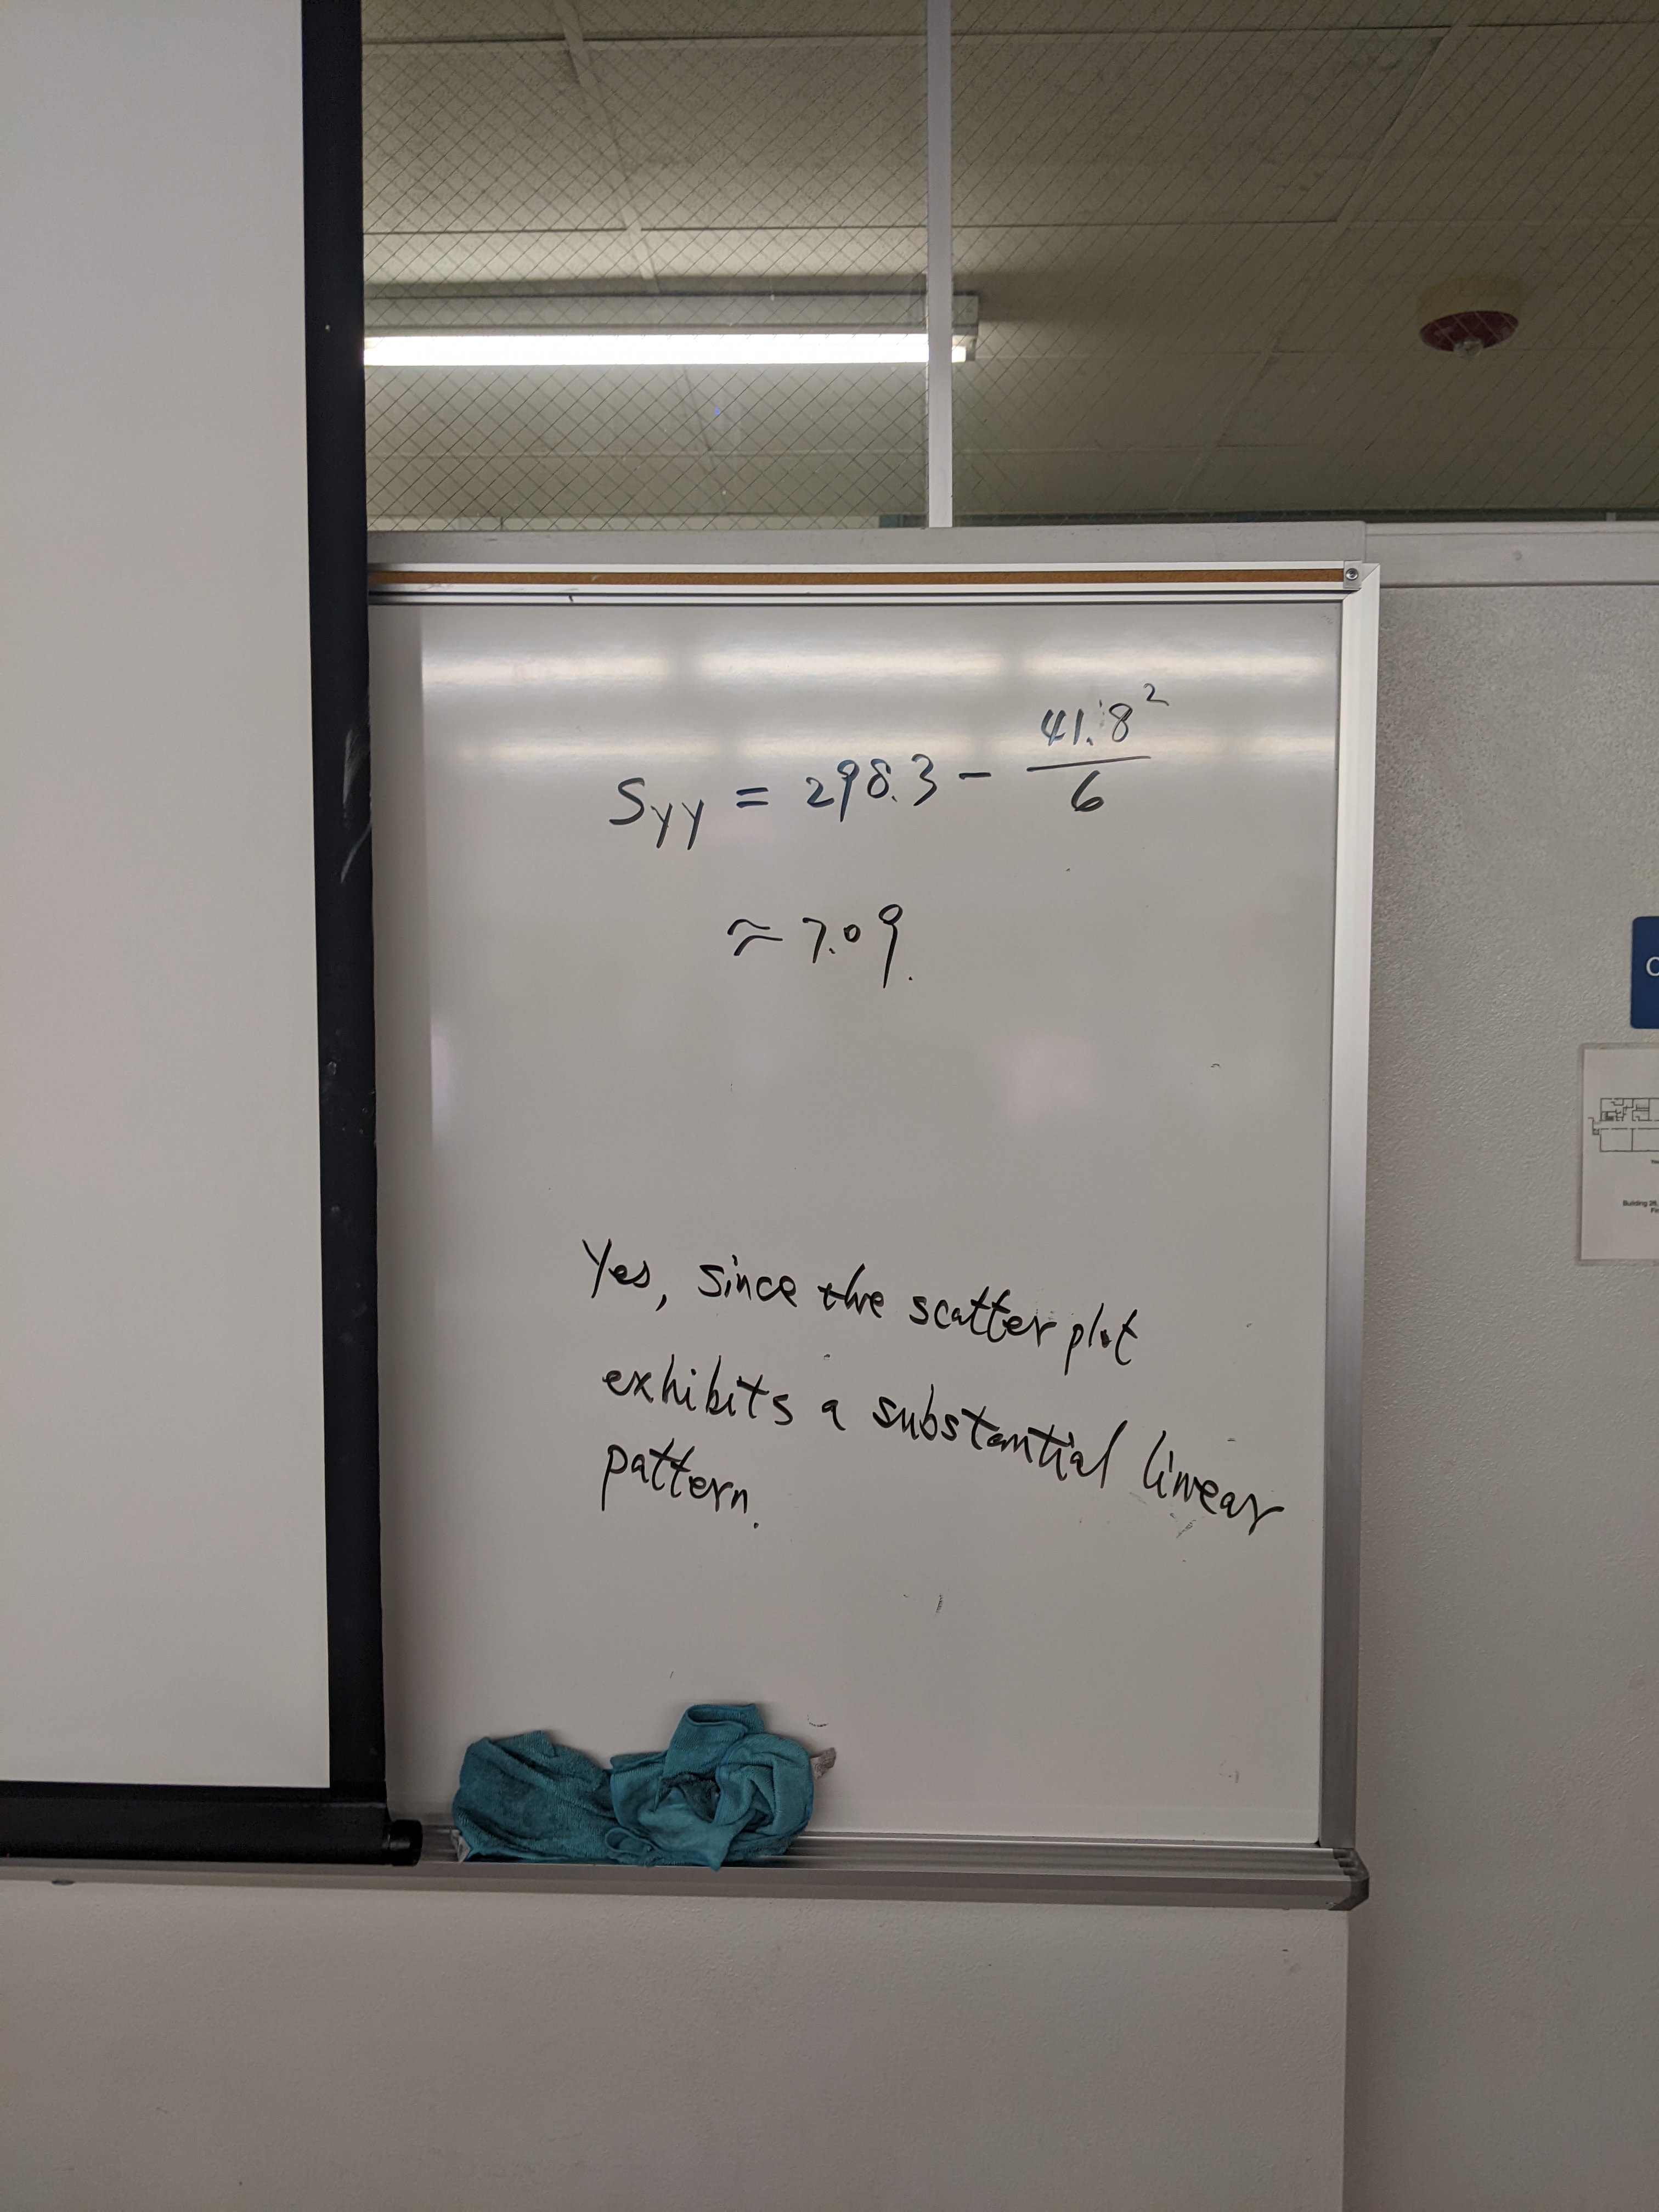 S_YY = 298.3 - 41.8² / 6
≈ 7.09.
Yes, since the scatter plot
exhibits a substantial linear
pattern.
Building 26